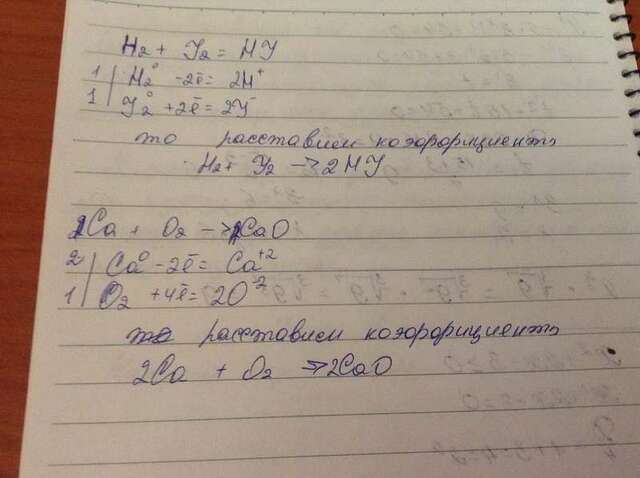 H₂ + J₂ = HJ
1 | H₂⁰ -2ē = 2H⁺
1 | J₂⁰ +2ē = 2J⁻
то расставим коэффициенты
H₂ + J₂ → 2HJ
2Ca + O₂ → 2CaO
2 | Ca⁰ -2ē = Ca⁺²
1 | O₂ +4ē = 2O⁻²
расставим коэффициенты
2Ca + O₂ → 2CaO